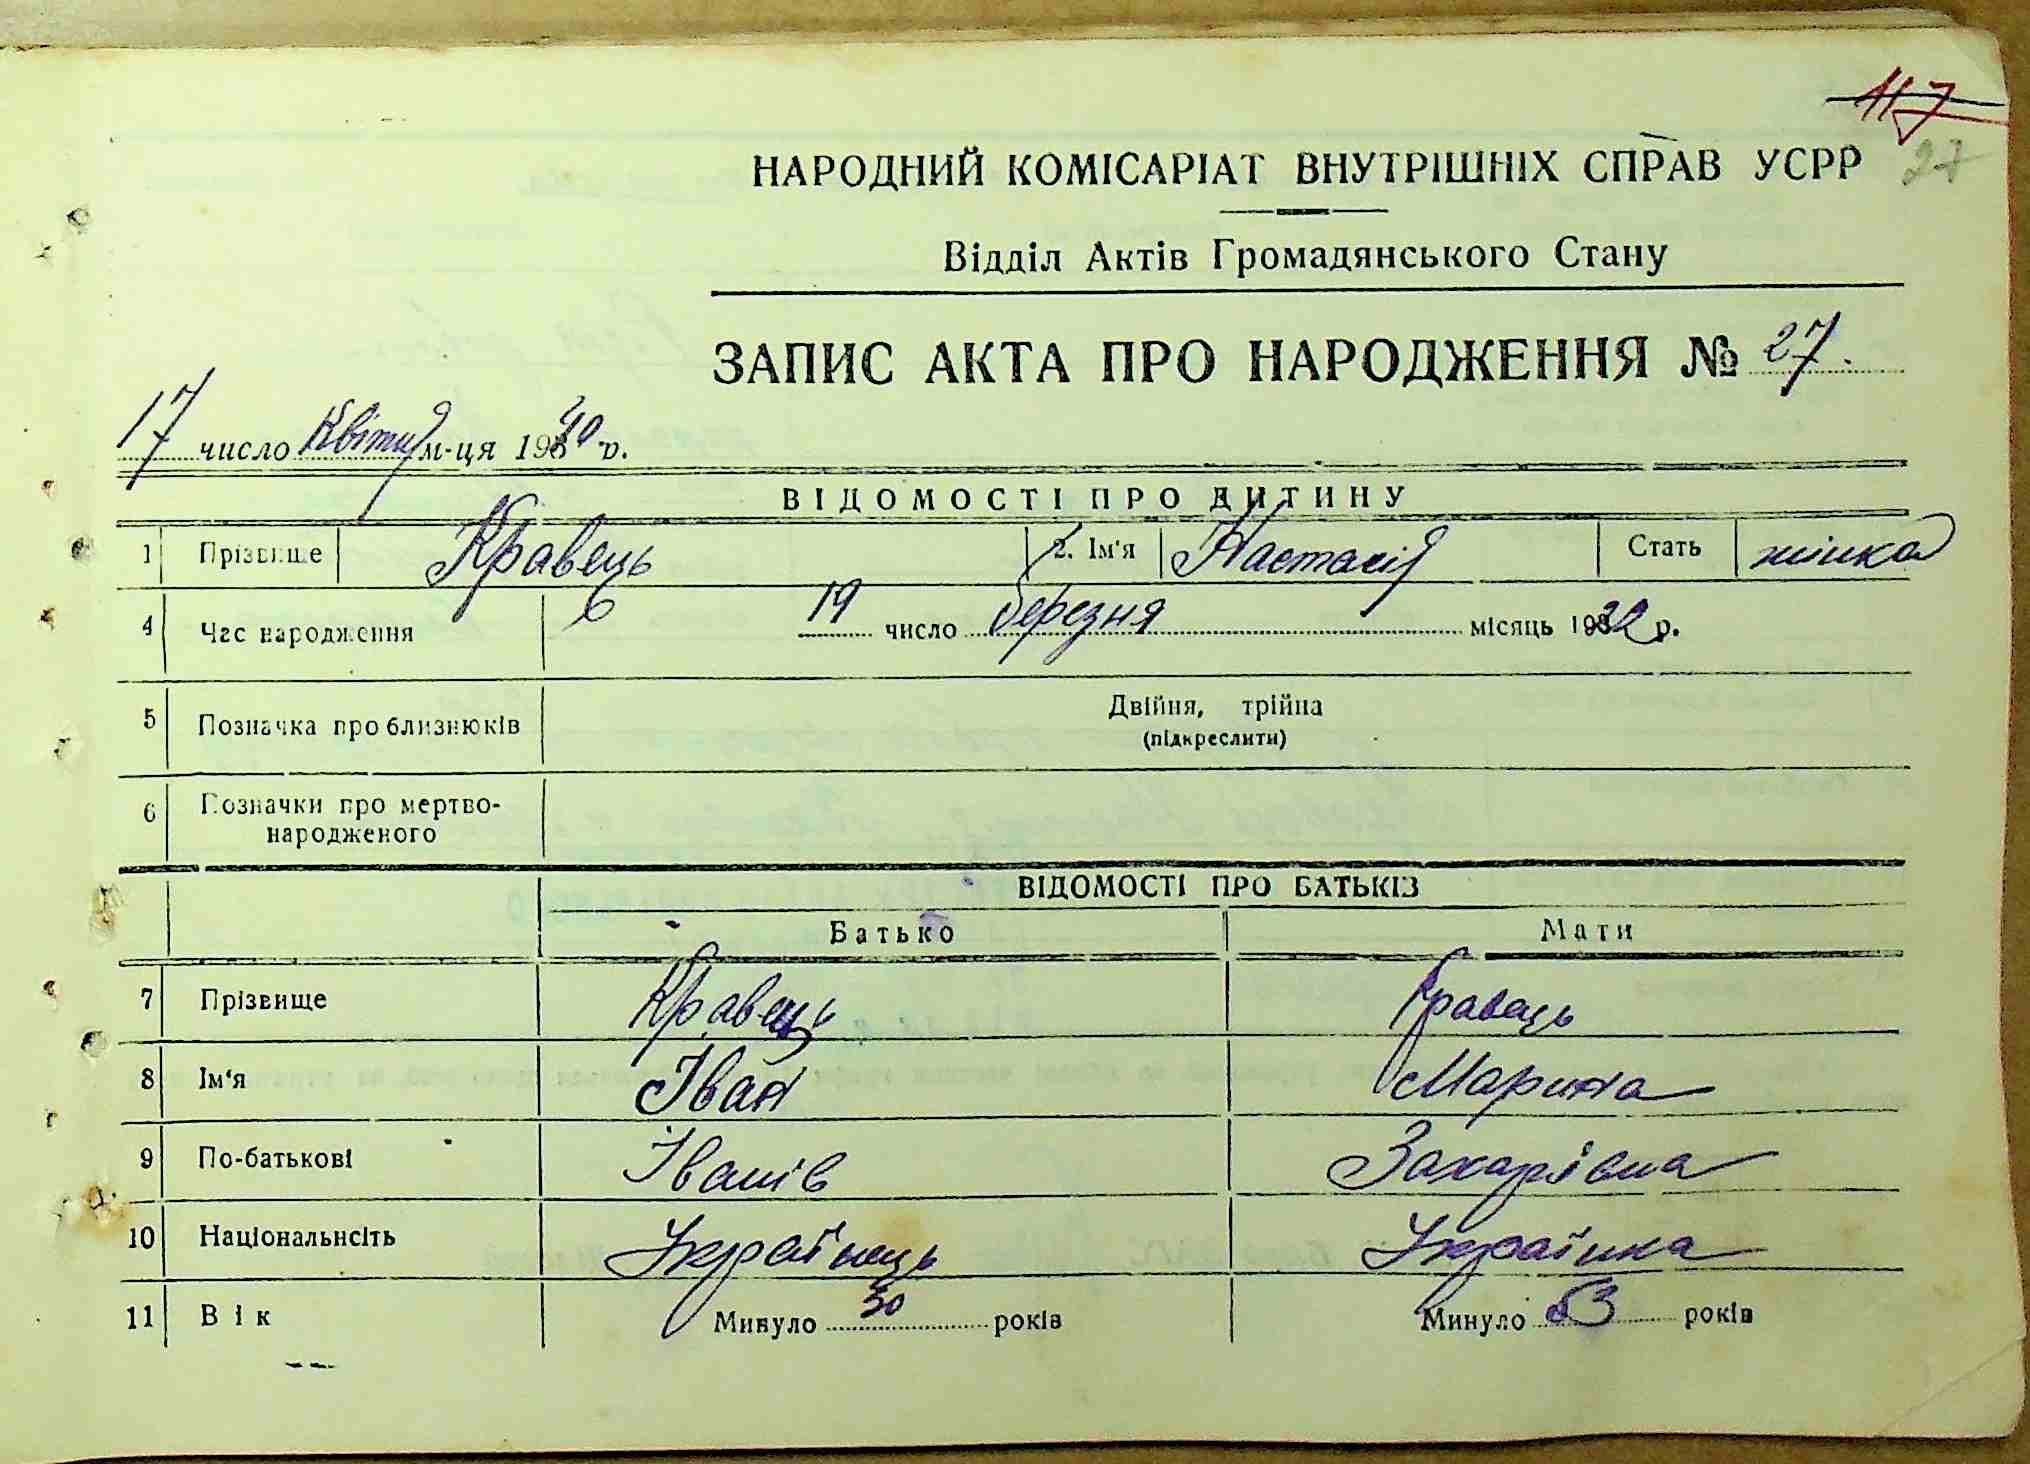 117
27
НАРОДНИЙ КОМІСАРІАТ ВНУТРІШНІХ СПРАВ УСРР
Відділ Актів Громадянського Стану
ЗАПИС АКТА ПРО НАРОДЖЕННЯ № 27.
17 число Квітня м-ця 1940 р.
ВІДОМОСТІ ПРО ДИТИНУ
1 Прізвище Кравець 2. Ім'я Настасія Стать жінка
4 Час народження 19 число березня місяць 19 р.
5 Позначка про близнюків Двійня, трійна
(підкреслити)
6 Позначки про мертво-
народженого
ВІДОМОСТІ ПРО БАТЬКІВ
Батько Мати
7 Прізвище Кравець Кравець
8 Ім'я Іван Марина
9 По-батькові Іванів Захарівна
10 Національнсіть Українець Українка
11 Вік Минуло років Минуло 53 років